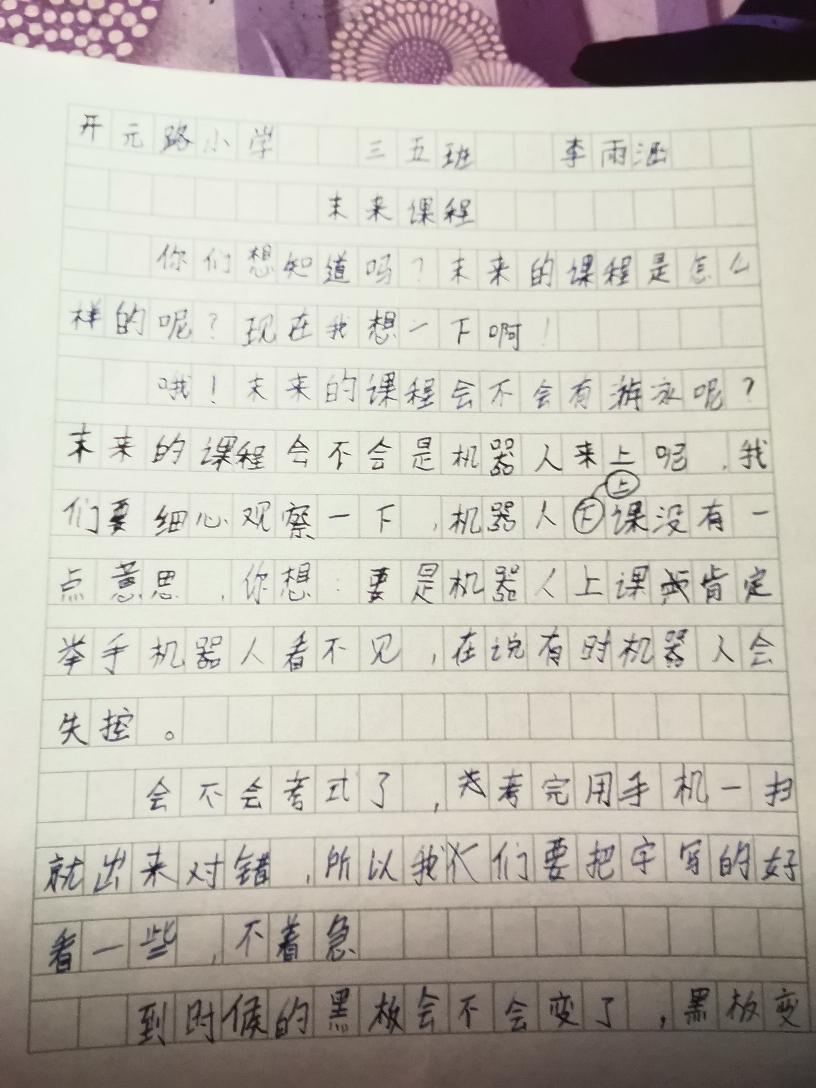 开元路小学 三五班 李雨涵
未来课程
你们想知道吗？未来的课程是怎么
样的呢？现在我想一下啊！
哦！未来的课程会不会有游泳呢？
未来的课程会不会是机器人来上呢，我
上
们要细心观察一下，机器人下课没有一
点意思，你想：要是机器人上课我肯定
举手机器人看不见，在说有时机器人会
失控。
会不会考式了，考完用手机一扫
就出来对错，所以我们要把字写的好
看一些，不着急
到时候的黑板会不会变了，黑板变